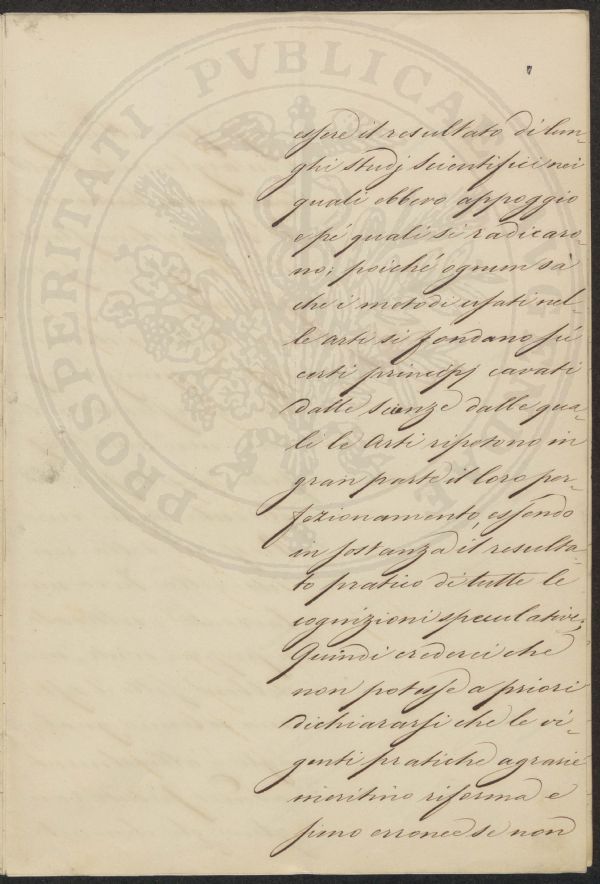 PROSPERITATI PVBLICAE
essere il resultato di lun-
ghi studj scientifici nei
quali ebbero appoggio
e pé quali si radicaro-
no; poiché ognun sà
che i metodi usati nel-
le arti si fondano sú
certi principj cavati
dalle scienze dalle qua-
li le Arti ripetono in
gran parte il loro per-
fezionamento, essendo
in sostanza il resulta-
to pratico di tutte le
cognizioni speculative;
Quindi crederei che
non potesse a priori
dichiararsi che le vi-
genti pratiche agrarie
meritino riforma e
sieno erronee se non